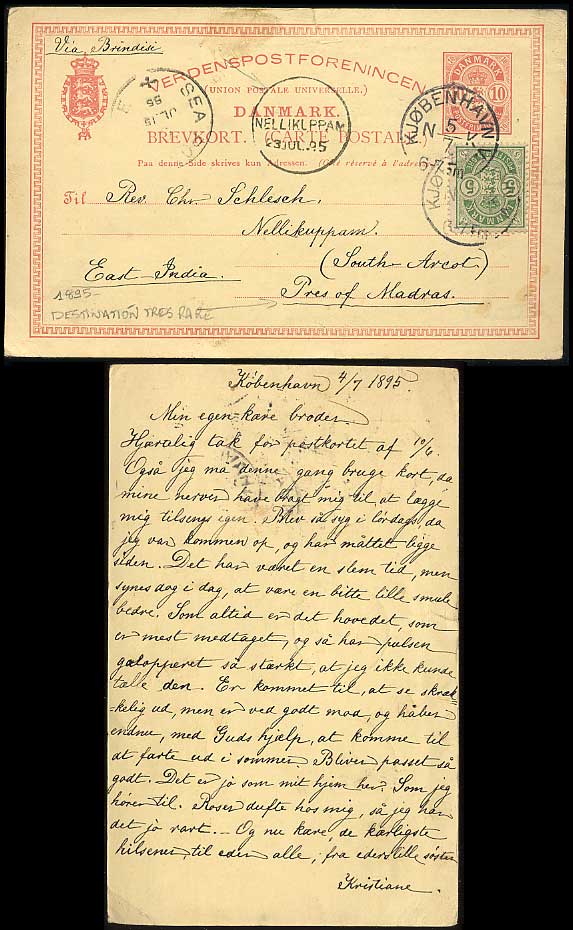 Via Brindisi
VERDENSPOSTFORENINGEN
(UNION POSTALE UNIVERSELLE.)
DANMARK.
BREVKORT. (CARTE POSTALE.)
Paa denne Side skrives kun Adressen. (Côté réservé à l'adresse
DANMARK
10
SEA
JL 19
95
NELLIKUPPAM
23 JUL. 95
KJØBENHAVN
N. 5
6-7
5
DANMARK
Til Rev. Chr. Schlesch.
Nellikuppam.
(South Arcot)
East India.
Pres of Madras.
1895
DESTINATION TRES RARE
København 4/7 1895.
Min egen kære broder.
Hjærtelig tak for postkortet af 10/6.
Også jeg må denne gang bruge kort, da
mine nerver have bragt mig til, at lægge
mig tilsengs igen. Blev så syg i lördags, da
jeg var kommen op, og har måttet ligge
siden. Det har været en slem tid, men
synes dog i dag, at være en bitte lille smule
bedre. Som altid er det hovedet, som
er mest medtaget, og så har pulsen
galopperet så stærkt, at jeg ikke kunde
tælle den. Er kommet til, at se skræk=
=kelig ud, men er ved godt mod, og håber
endnu, med Guds hjælp, at komme til
at farte ud i sommer. Bliver passet så
godt. Det er jo som mit hjem her. Som jeg
hører til. Roser dufte hos mig, så jeg har
det jo rart. — Og nu kære, de kærligste
hilsener, til eder alle, fra eders lille søster
Kristiane.